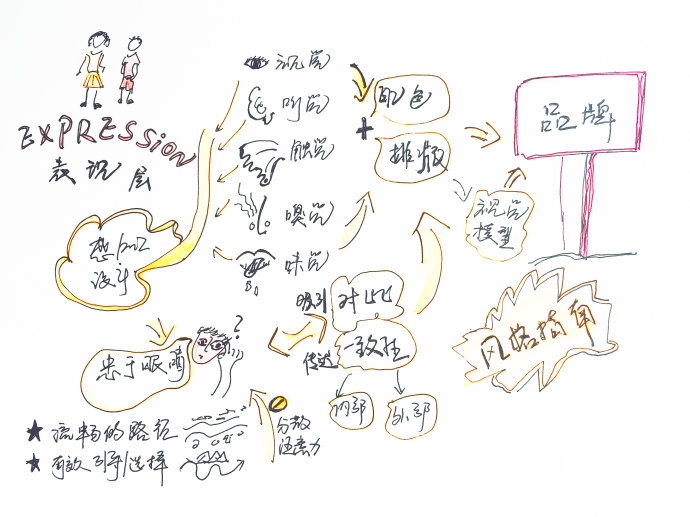 EXPRESSION
表现层
视觉
听觉
触觉
嗅觉
味觉
感知
设计
配色
+
排版
品牌
视觉
模型
风格指南
吸引 对比
传达 一致性
内部
外部
忠于眼睛
?
分散
注意力
★ 流畅的路径
★ 有效引导选择